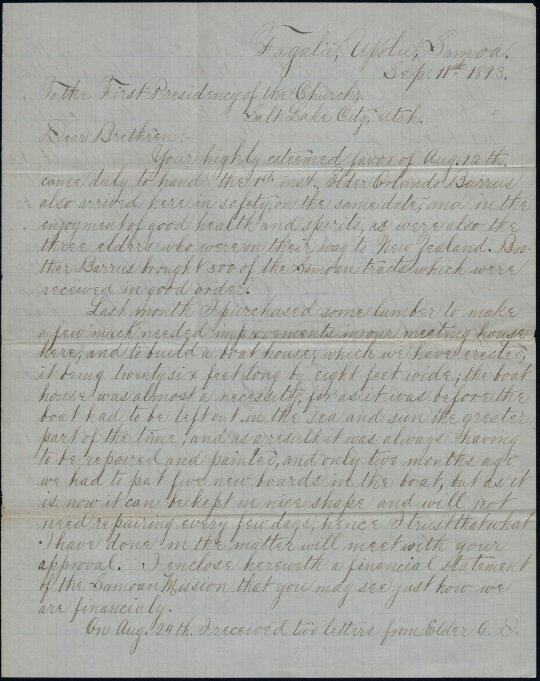 Fagalii, Upolu, Samoa.
Sep. 11th 1893.
To the First Presidency of the Church,
Salt Lake City, Utah.
Dear Brethren:-
Your highly esteemed favor of Aug. 12th,
came duly to hand the 1st inst., Elder Orlando Barrus
also arrived here in safety, on the same date, and in the
enjoyment of good health and spirits, as were also the
three elders who were on their way to New Zealand. Bro-
ther Barrus bought 500 of the Samoan tracts which were
received in good order.
Last month I purchased some lumber to make
a few much needed improvements in our meeting house
here, and to build a boat house, which we have erected,
it being twentysix feet long by eight feet wide; the boat
house was almost a necessity, for as it was before the
boat had to be left out in the sea and sun the greater
part of the time, and as a result it was always having
to be repaired and painted, and only two months ago
we had to put five new boards in the boat, but as it
is now it can be kept in nice shape and will not
need repairing every few days, hence I trust that what
I have done in the matter will meet with your
approval. I enclose herewith a financial statement
of the Samoan Mission that you may see just how we
are financialy.
On Aug. 24th. I received two letters from Elder C. S.